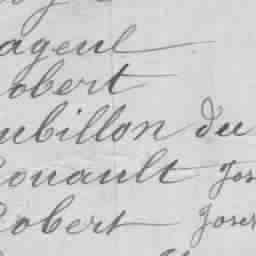 ageul
obert
ubillon du
ouault Jos
Robert Jose